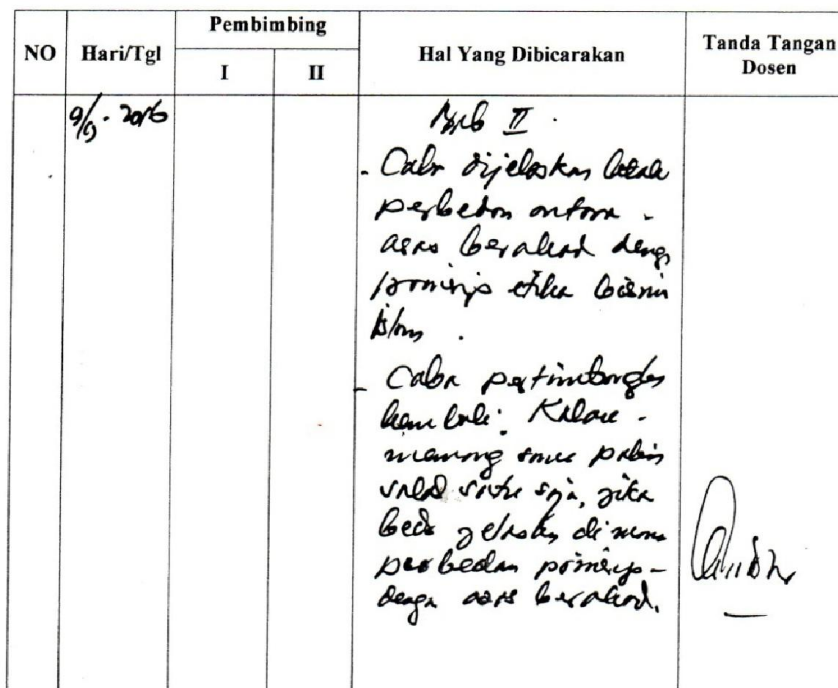 NO Hari/Tgl Pembimbing Hal Yang Dibicarakan Tanda Tangan Dosen
I II
9/9. 2016 Bab II.
- Coba dijelaskan letak
perbedaan antara -
asas berakad dengan
prinsip etika bisnis
Islam.
- Coba pertimbangkan
kembali. Kalau -
memang sama pakai
salah satu saja, jika
beda jelaskan di mana
perbedaan prinsip -
dengan asas berakad.